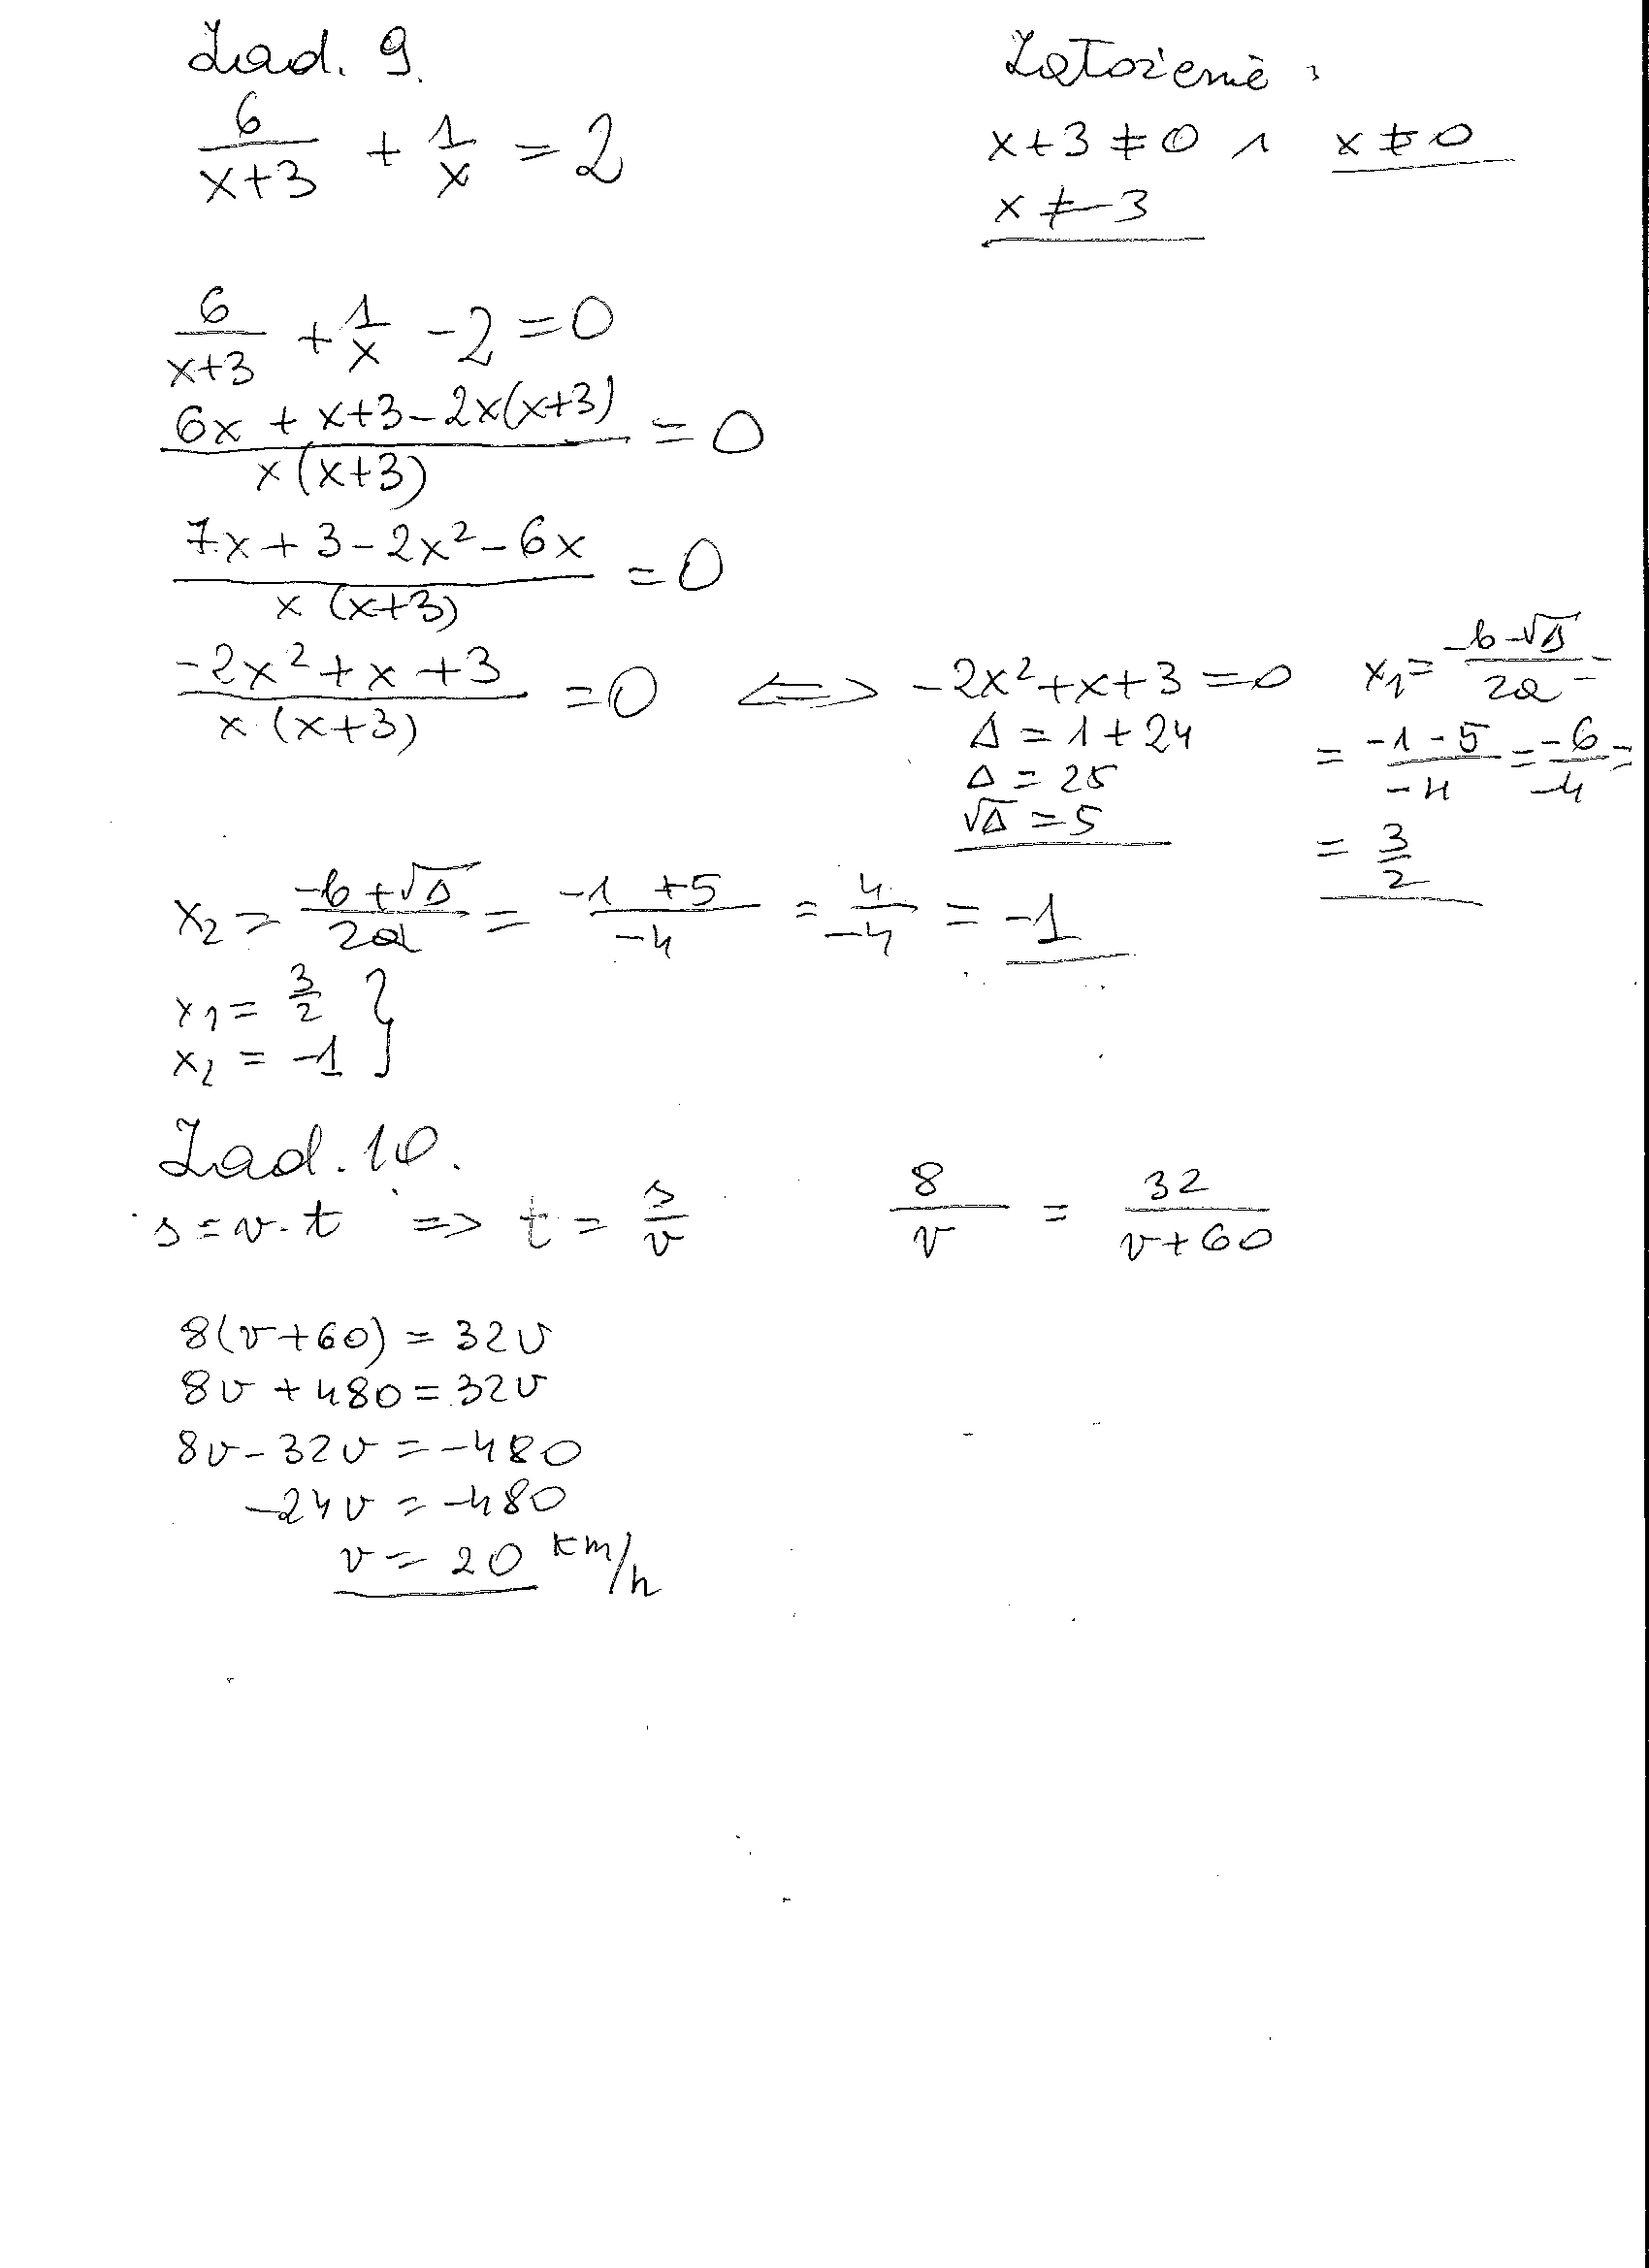 Zad. 9.
Założenie:
6/(x+3) + 1/x = 2
x+3 ≠ 0 ∧ x ≠ 0
x ≠ -3
6/(x+3) + 1/x - 2 = 0
(6x + x+3 - 2x(x+3))/(x(x+3)) = 0
(7x + 3 - 2x² - 6x)/(x(x+3)) = 0
(-2x² + x + 3)/(x·(x+3)) = 0 ⟺ -2x² + x + 3 = 0
Δ = 1 + 24
Δ = 25
√Δ = 5
x₁ = (-b-√Δ)/2a =
= (-1-5)/-4 = -6/-4 =
= 3/2
x₂ = (-b+√Δ)/2a = (-1+5)/-4 = 4/-4 = -1
x₁ = 3/2 }
x₂ = -1 }
Zad. 10.
s = v·t ⇒ t = s/v
8/v = 32/(v+60)
8(v+60) = 32v
8v + 480 = 32v
8v - 32v = -480
-24v = -480
v = 20 km/h